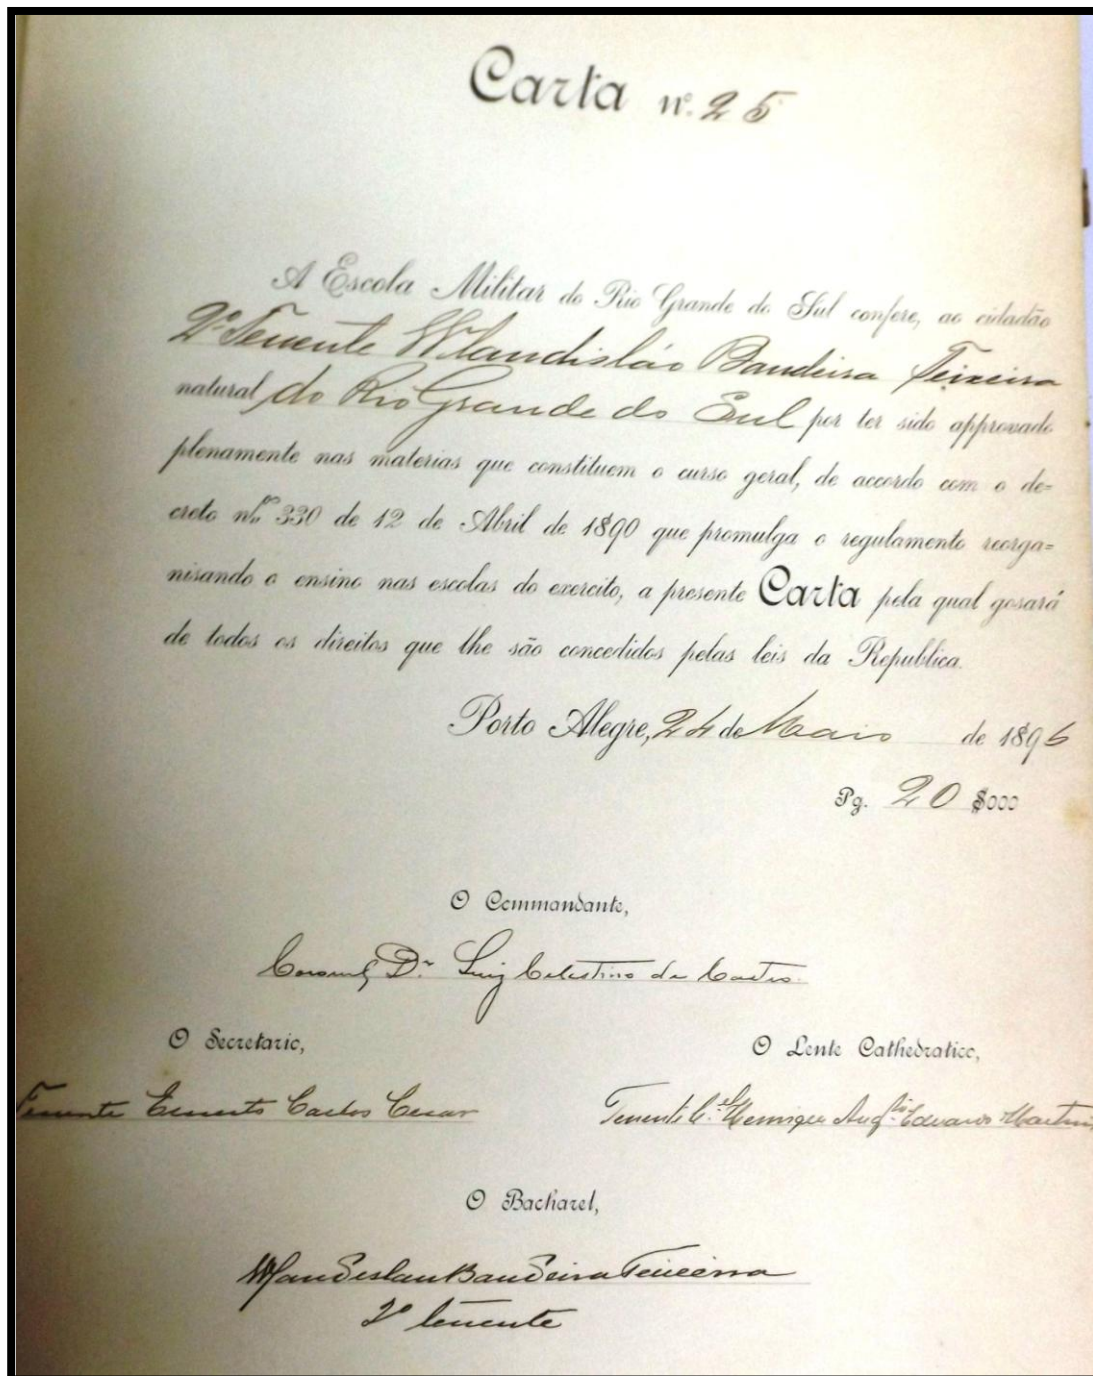 Carta nº 25
A Escola Militar do Rio Grande do Sul confere, ao cidadão
2º Tenente Wlandisláo Bandeira Teixeira
natural do Rio Grande do Sul por ter sido approvado
plenamente nas materias que constituem o curso geral, de accordo com o de=
creto nº 330 de 12 de Abril de 1890 que promulga o regulamento reorga=
nisando o ensino nas escolas do exercito, a presente Carta pela qual gosará
de todos os direitos que lhe são concedidos pelas leis da Republica.
Porto Alegre, 24 de Maio de 1896
Pg. 20 $000
O Commandante,
Coronel Dr Luiz Celestino de Castro.
O Secretario,
O Lente Cathedratico,
Tenente Ernesto Carlos Cesar
Tenente C.el Augto Eduardo Martins
O Bacharel,
Wlandislau Bandeira Teixeira
2º tenente